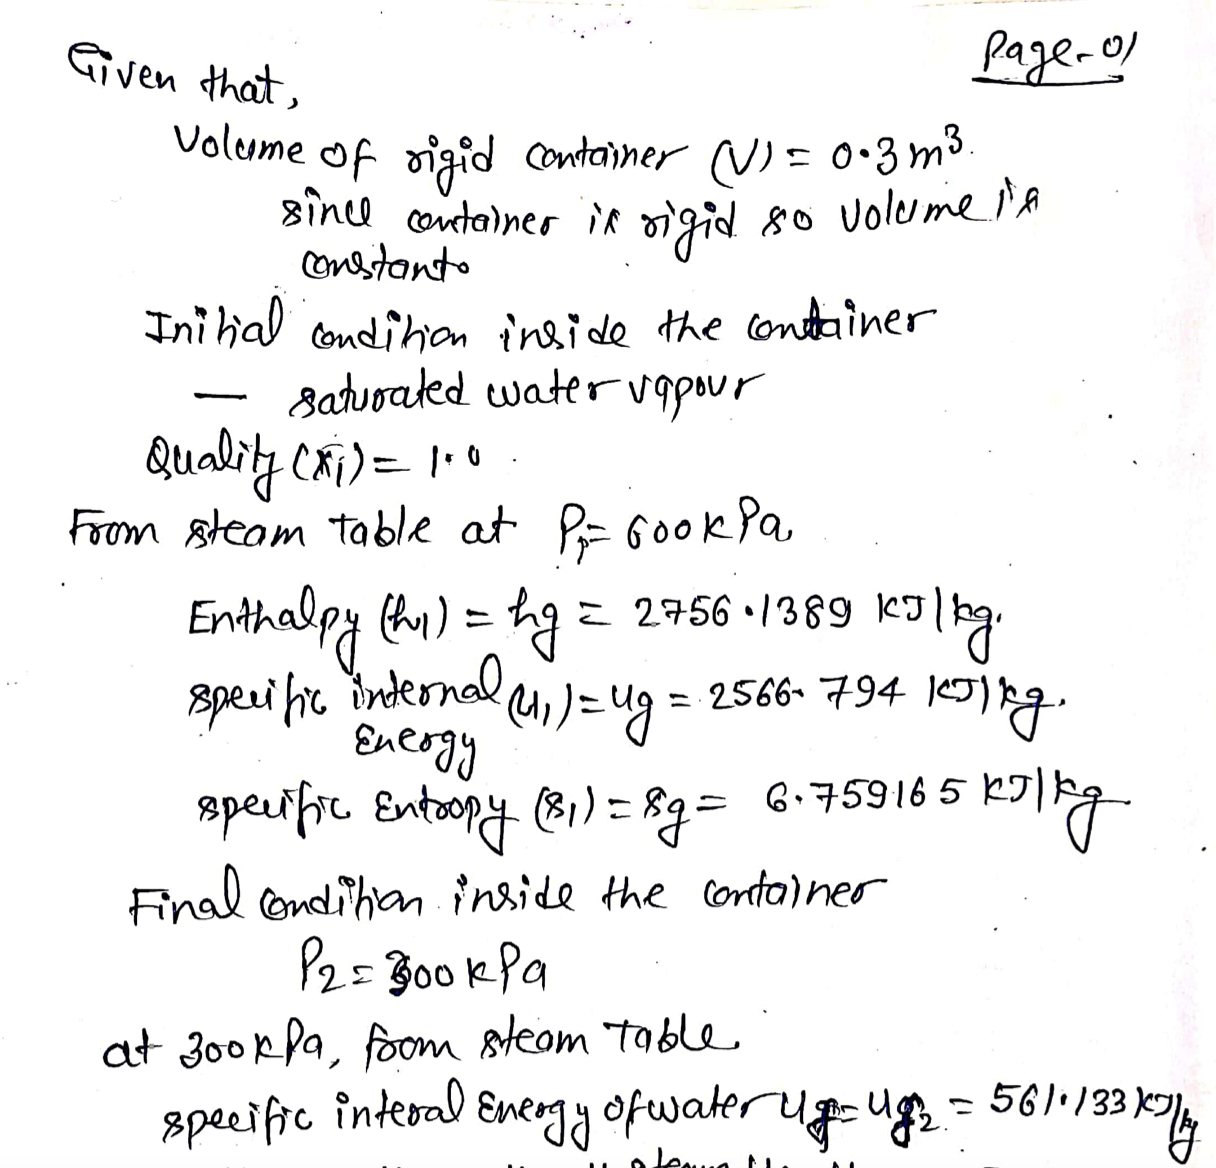 Page-01
Given that,
Volume of rigid container (V) = 0.3 m³.
since container is rigid so volume is
constant.
Initial condition inside the container
— saturated water vapour
Quality (x₁) = 1.0
From steam table at P₁ = 600 kPa
Enthalpy (h₁) = hg = 2756.1389 kJ/kg.
specific internal (u₁) = ug = 2566.794 kJ/kg.
Energy
specific Entropy (s₁) = sg = 6.759165 kJ/kg
Final condition inside the container
P₂ = 300 kPa
at 300 kPa, from steam table
specific interal Energy of water = 561.133 kJ/kg